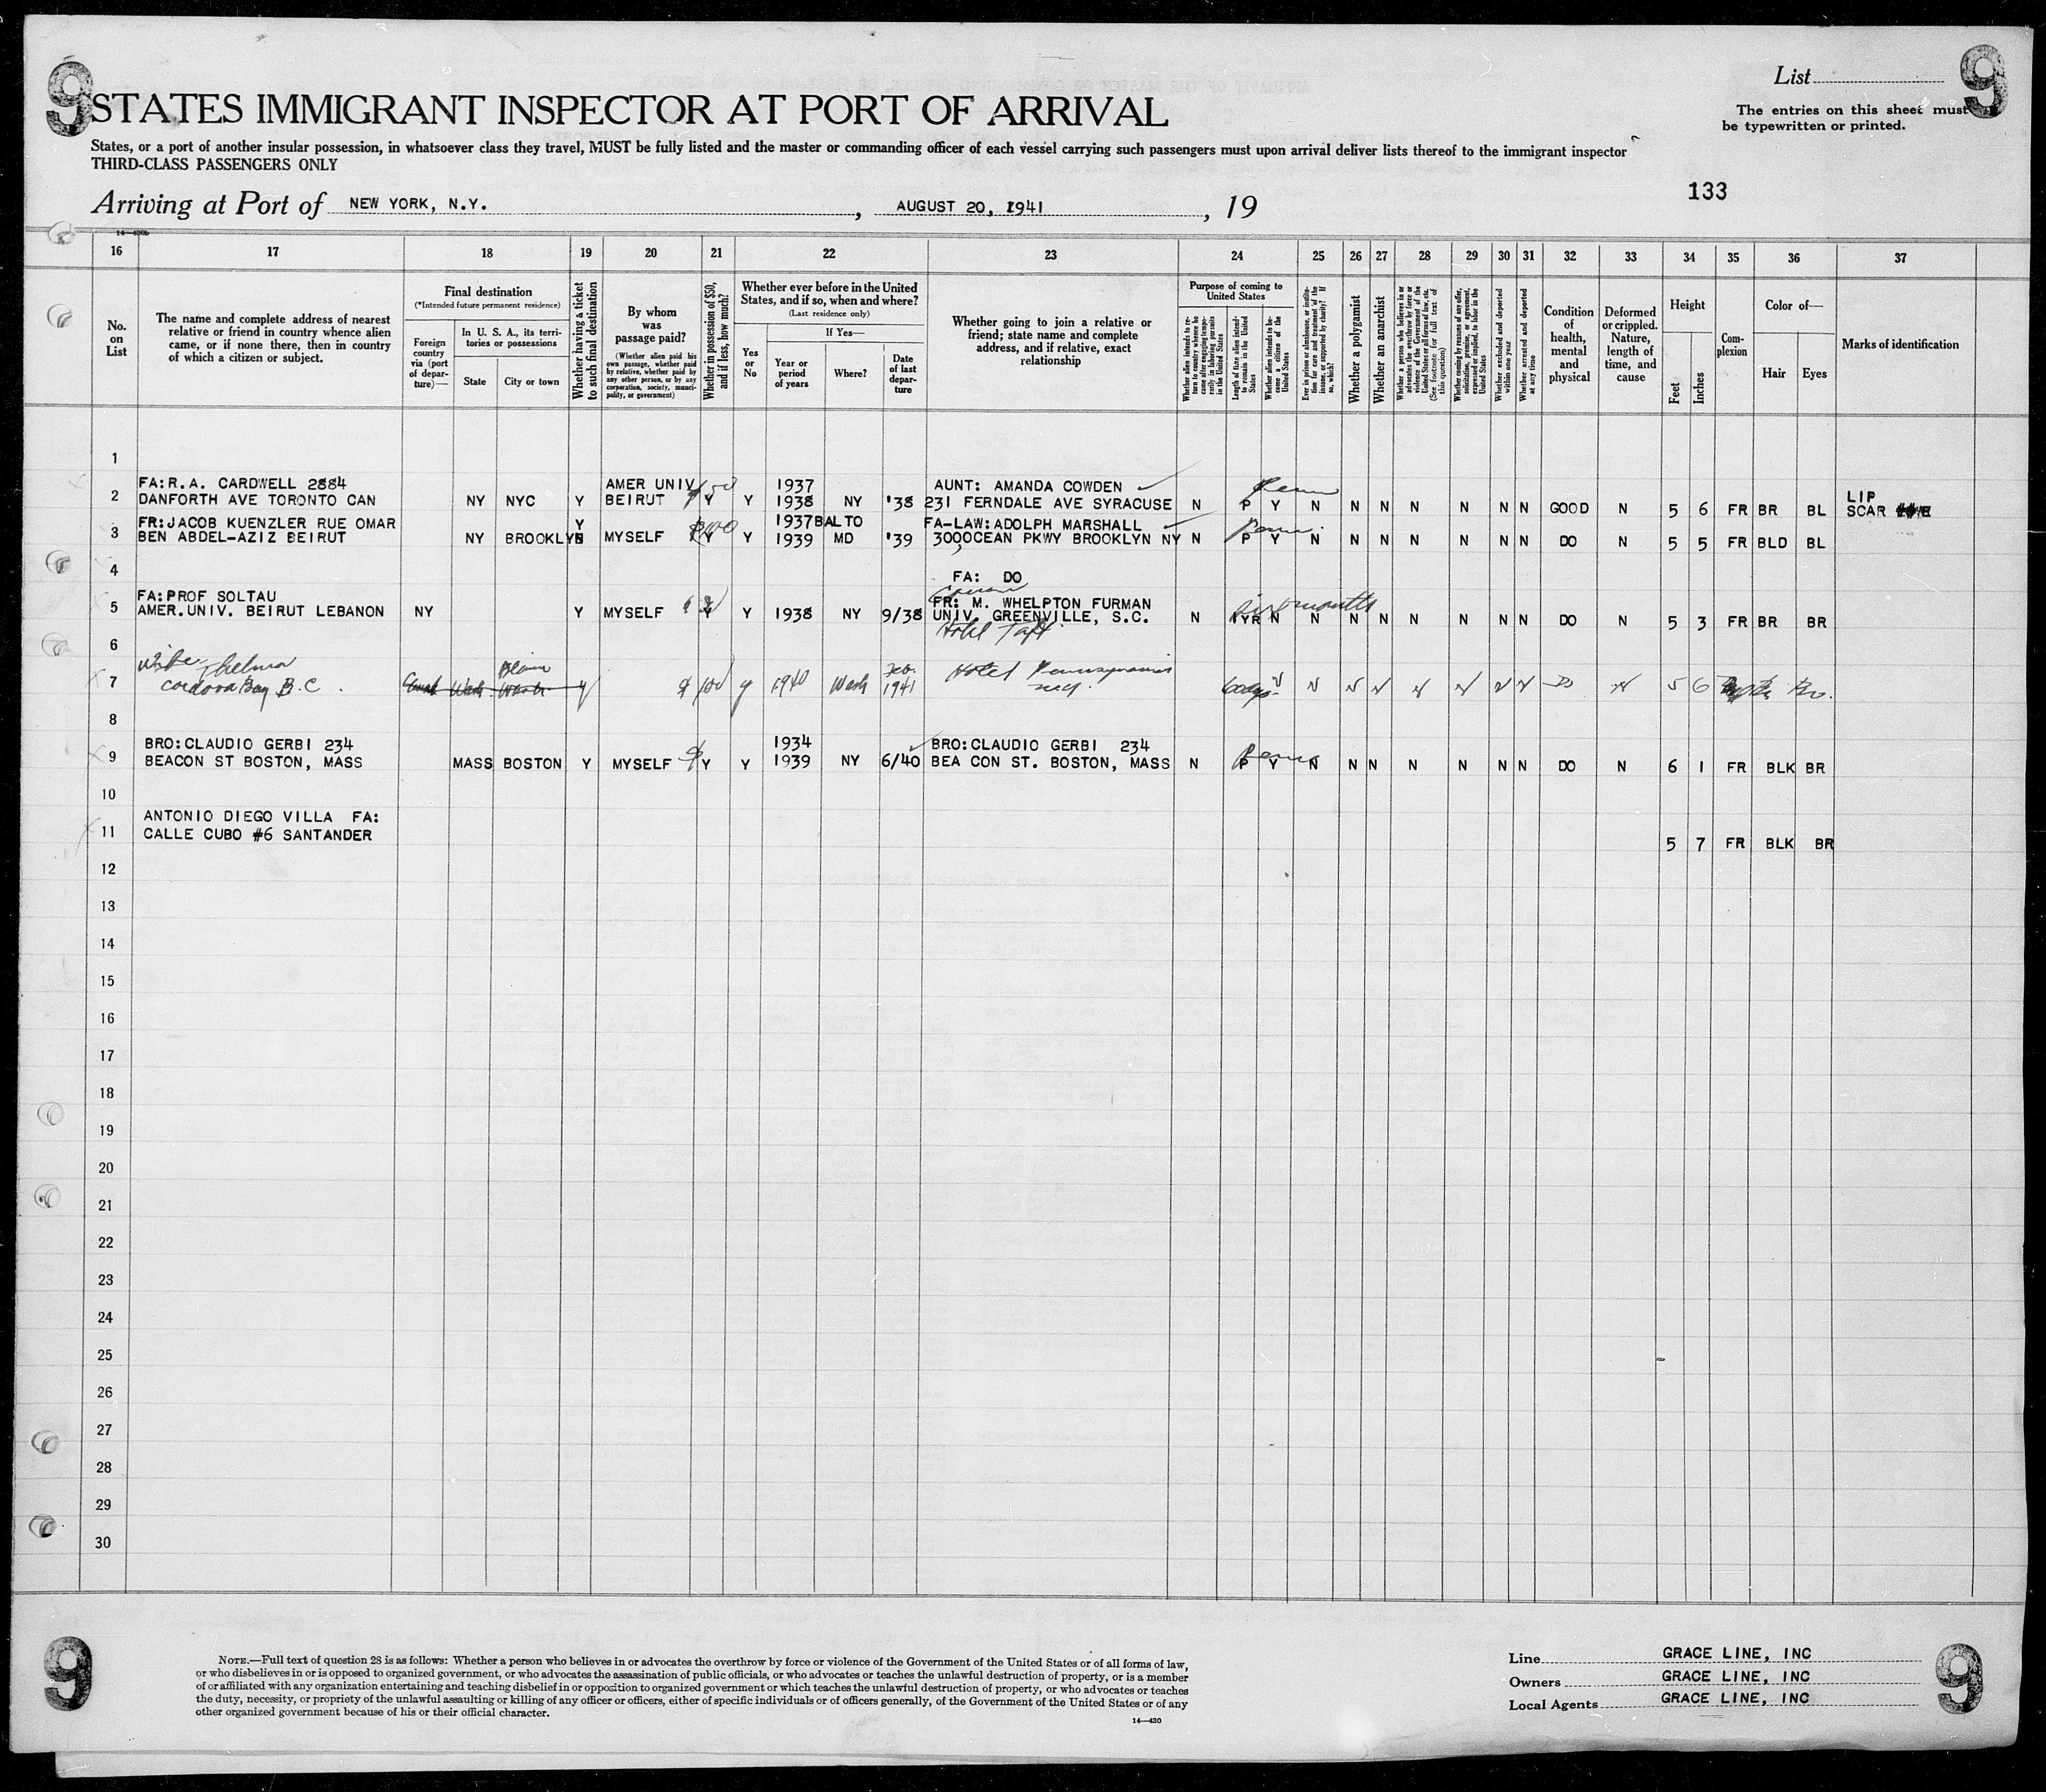 9
9
List
STATES IMMIGRANT INSPECTOR AT PORT OF ARRIVAL
The entries on this sheet must
be typewritten or printed.
States, or a port of another insular possession, in whatsoever class they travel, MUST be fully listed and the master or commanding officer of each vessel carrying such passengers must upon arrival deliver lists thereof to the immigrant inspector
THIRD-CLASS PASSENGERS ONLY
133
Arriving at Port of NEW YORK, N.Y. , AUGUST 20, 1941 , 19
16 17 18 19 20 21 22 23 24 25 26 27 28 29 30 31 32 33 34 35 36 37
No. on List
The name and complete address of nearest relative or friend in country whence alien came, or if none there, then in country of which a citizen or subject.
Final destination
(*Intended future permanent residence)
Foreign country via (port of departure)—
In U. S. A., its territories or possessions
State
City or town
Whether having a ticket to such final destination
By whom was passage paid?
(Whether alien paid his own passage, whether paid by relative, whether paid by any other person, or by any corporation, society, municipality, or government)
Whether in possession of $50, and if less, how much?
Whether ever before in the United States, and if so, when and where?
(Last residence only)
Yes or No
If Yes—
Year or period of years
Where?
Date of last departure
Whether going to join a relative or friend; state name and complete address, and if relative, exact relationship
Purpose of coming to United States
Whether alien intends to return to country whence he came after engaging temporarily in laboring pursuits in the United States
Length of time alien intends to remain in the United States
Whether alien intends to become a citizen of the United States
Ever in prison or almshouse, or institution for care and treatment of the insane, or supported by charity? If so, which?
Whether a polygamist
Whether an anarchist
Whether a person who believes in or advocates the overthrow by force or violence of the Government of the United States or all forms of law, etc. (See footnote for full text of this question)
Whether coming by reason of any offer, solicitation, promise, or agreement, expressed or implied, to labor in the United States
Whether excluded and deported within one year
Whether arrested and deported at any time
Condition of health, mental and physical
Deformed or crippled. Nature, length of time, and cause
Height
Feet
Inches
Complexion
Color of—
Hair
Eyes
Marks of identification
1
FA: R.A. CARDWELL 2884 AMER UNIV $150 1937 AUNT: AMANDA COWDEN Perm LIP
2 DANFORTH AVE TORONTO CAN NY NYC Y BEIRUT Y Y 1938 NY '38 231 FERNDALE AVE SYRACUSE N P Y N N N N N N N GOOD N 5 6 FR BR BL SCAR
FR: JACOB KUENZLER RUE OMAR Y 1937 BALTO FA-LAW: ADOLPH MARSHALL Perm
3 BEN ABDEL-AZIZ BEIRUT NY BROOKLYN MYSELF Y Y 1939 MD '39 300 OCEAN PKWY BROOKLYN NY N P Y N N N N N N N DO N 5 5 FR BLD BL
4 FA: DO
FA: PROF SOLTAU FR: M. WHELPTON FURMAN six months
5 AMER. UNIV. BEIRUT LEBANON NY Y MYSELF Y Y 1938 NY 9/38 UNIV. GREENVILLE, S.C. N 1YR N N N N N N N N DO N 5 3 FR BR BR
Hotel Taft
6
wife Thelma Blaine Feb. Hotel Pennsylvania
7 Cordova Bay B.C. Wash y $100 y 1940 Wash 1941 N.Y. 60 dys N N N N N N N N Do N 5 6 Br.
8
BRO: CLAUDIO GERBI 234 1934 BRO: CLAUDIO GERBI 234 Perm
9 BEACON ST BOSTON, MASS MASS BOSTON Y MYSELF $ Y Y 1939 NY 6/40 BEA CON ST. BOSTON, MASS N P Y N N N N N N N DO N 6 1 FR BLK BR
10
ANTONIO DIEGO VILLA FA:
11 CALLE CUBO #6 SANTANDER 5 7 FR BLK BR
12
13
14
15
16
17
18
19
20
21
22
23
24
25
26
27
28
29
30
9
NOTE.—Full text of question 28 is as follows: Whether a person who believes in or advocates the overthrow by force or violence of the Government of the United States or of all forms of law,
or who disbelieves in or is opposed to organized government, or who advocates the assassination of public officials, or who advocates or teaches the unlawful destruction of property, or is a member
of or affiliated with any organization entertaining and teaching disbelief in or opposition to organized government or which teaches the unlawful destruction of property, or who advocates or teaches
the duty, necessity, or propriety of the unlawful assaulting or killing of any officer or officers, either of specific individuals or of officers generally, of the Government of the United States or of any
other organized government because of his or their official character.
14—430
Line GRACE LINE, INC
Owners GRACE LINE, INC
Local Agents GRACE LINE, INC
9